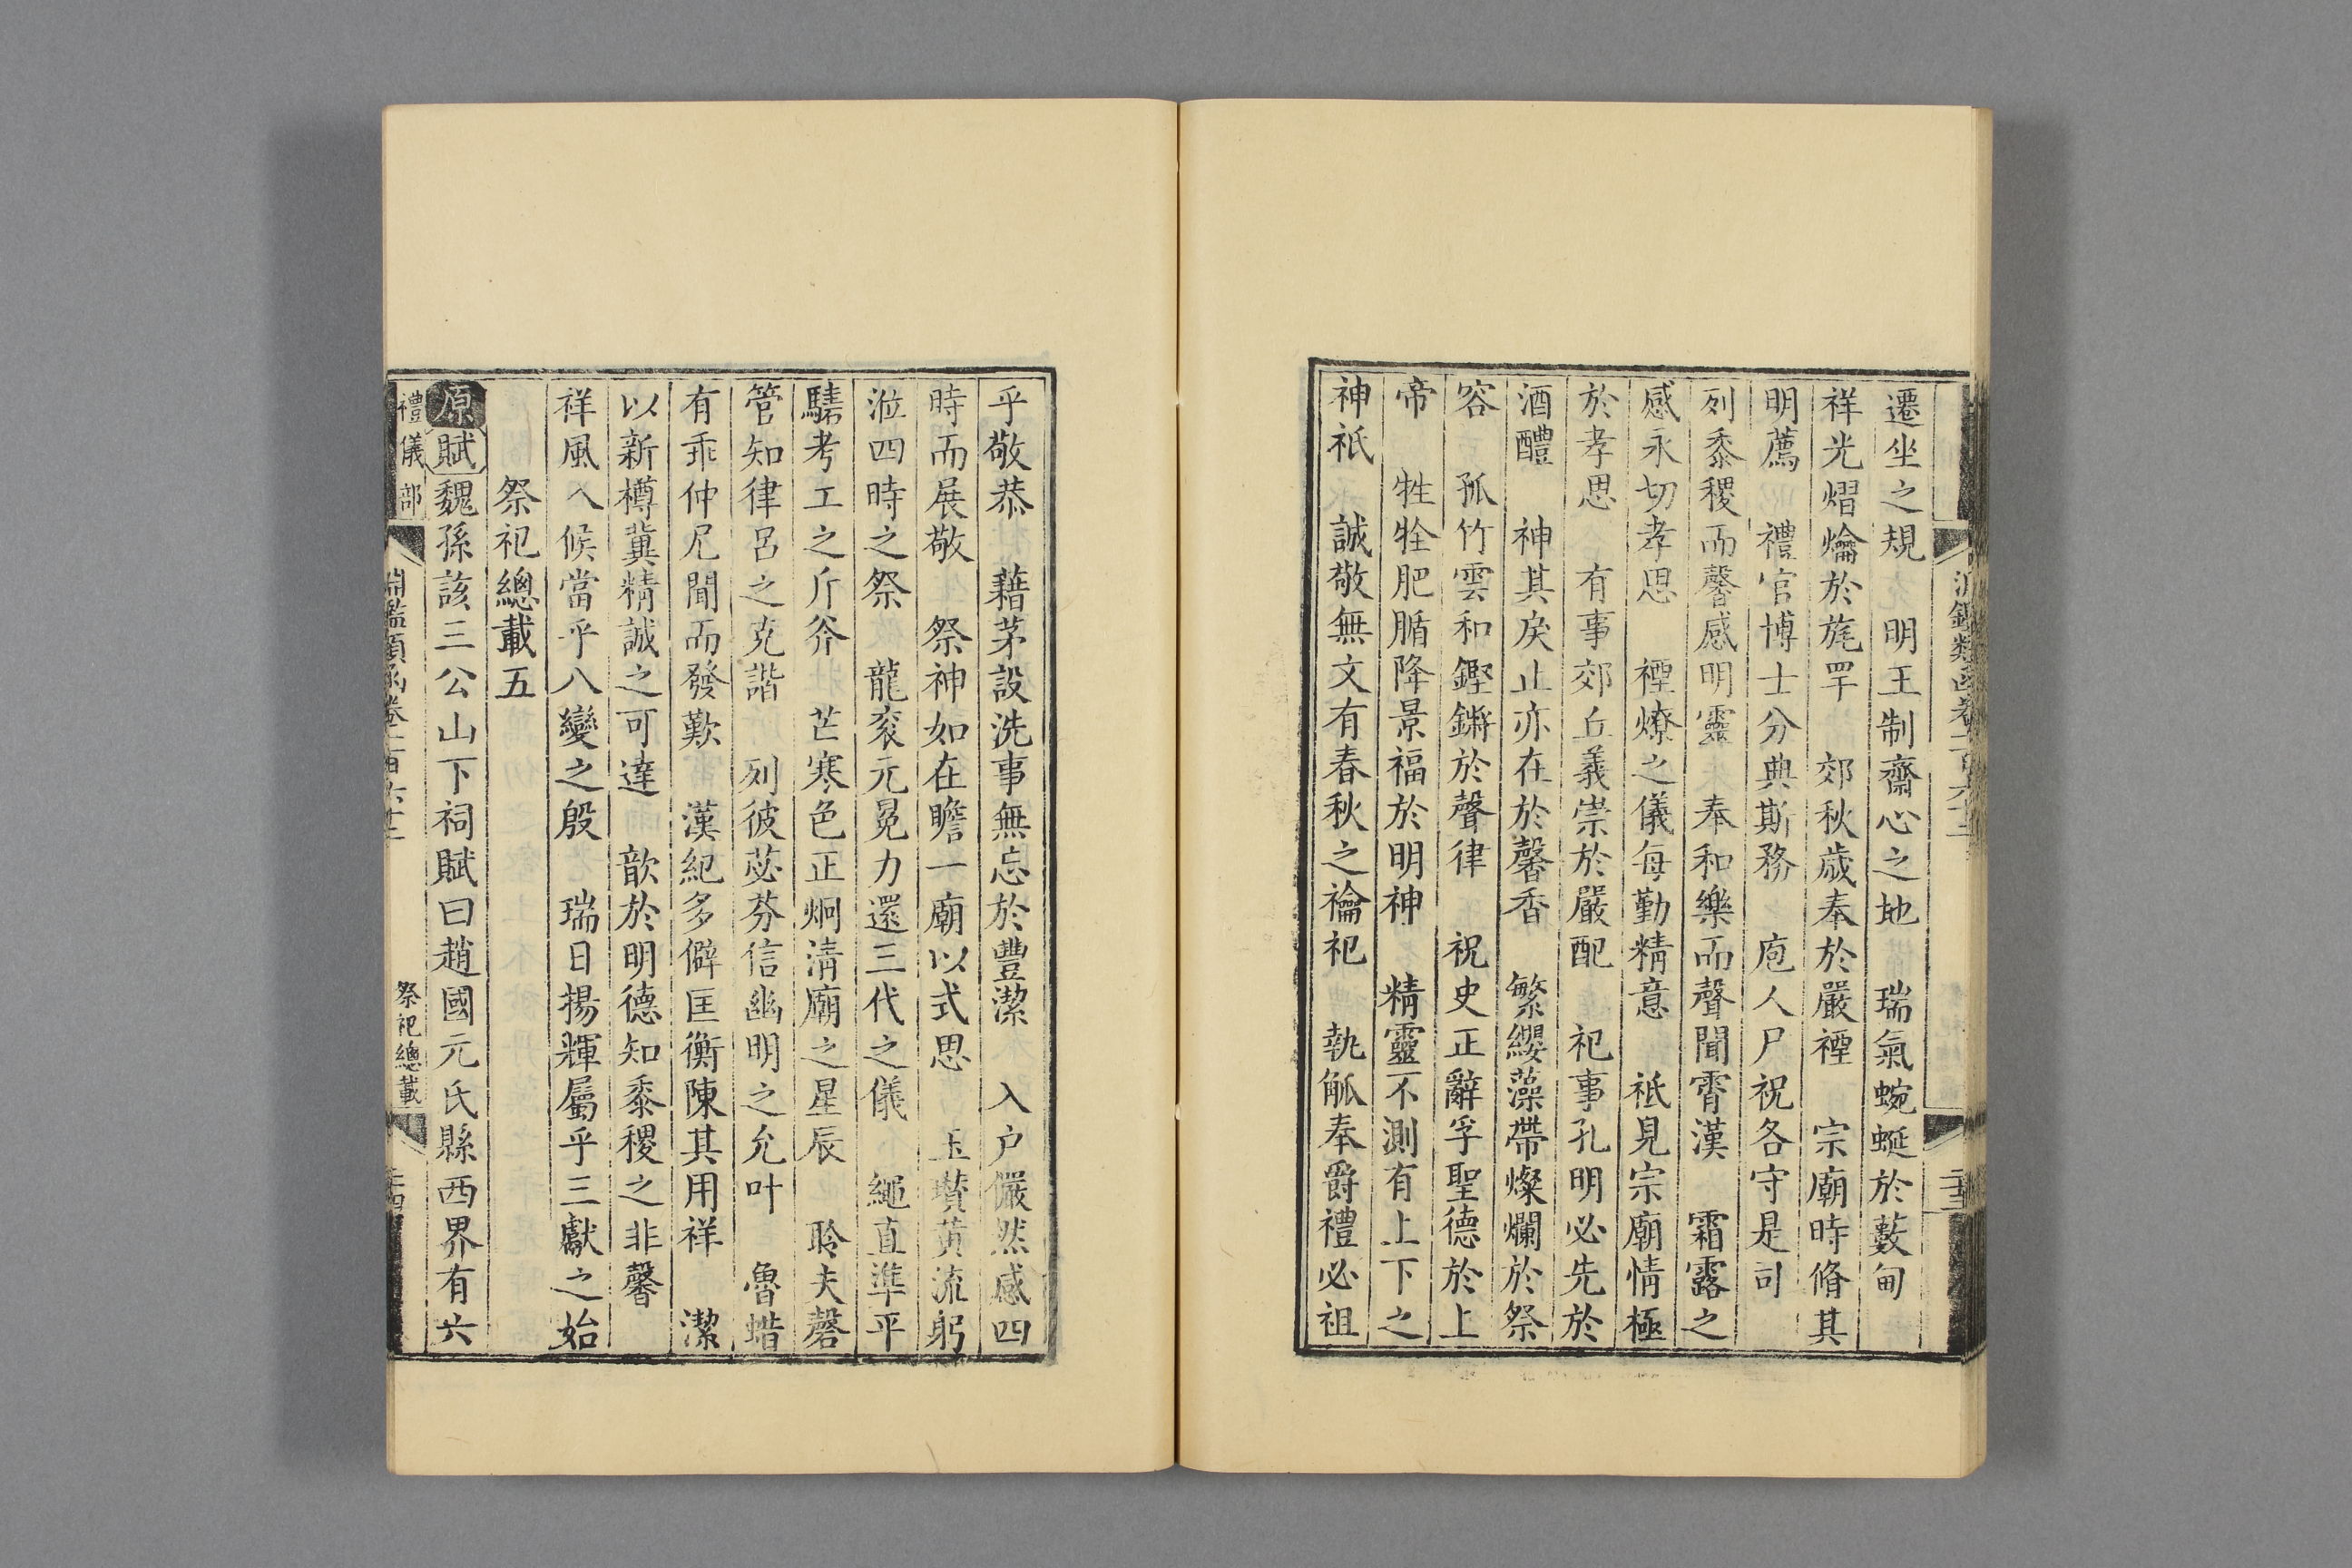 遷坐之規　明王制齋心之地　瑞氣蜿蜒於藪甸
祥光熠爚於旄罕　郊秋歲奉於嚴禋　宗廟時脩其
明薦　禮官博士分典斯務　庖人尸祝各守是司
列黍稷而馨感明靈　奉和樂而聲聞霄漢　霜露之
感永切孝思　禋燎之儀每勤精意　祇見宗廟情極
於孝思　有事郊丘義崇於嚴配　祀事孔明必先於
酒醴　神其戾止亦在於馨香　繁纓藻帶燦爛於祭
容　孤竹雲和鏗鏘於聲律　祝史正辭孚聖德於上
帝　牲牷肥腯降景福於明神　精靈不測有上下之
神祇　誠敬無文有春秋之禴祀　執觚奉爵禮必祖
乎敬恭　藉茅設洗事無忘於豐潔　入户儼然感四
時而展敬　祭神如在瞻一廟以式思　玉瓚黃流躬
涖四時之祭　龍衮元冕力還三代之儀　繩直準平
驌考工之斤斧　芒寒色正炯清廟之星辰　聆夫磬
管知律呂之克諧　列彼苾芬信幽明之允叶　魯蜡
有乖仲尼聞而發歎　漢紀多僻匡衡陳其用祥　潔
以新樽冀精誠之可達　歆於明德知黍稷之非馨
祥風入候當乎八變之殷　瑞日揚輝屬乎三獻之始
祭祀總載五
原賦魏孫該三公山下祠賦曰趙國元氏縣西界有六
禮儀部　淵鑑類函卷一百六十二　祭祀總載